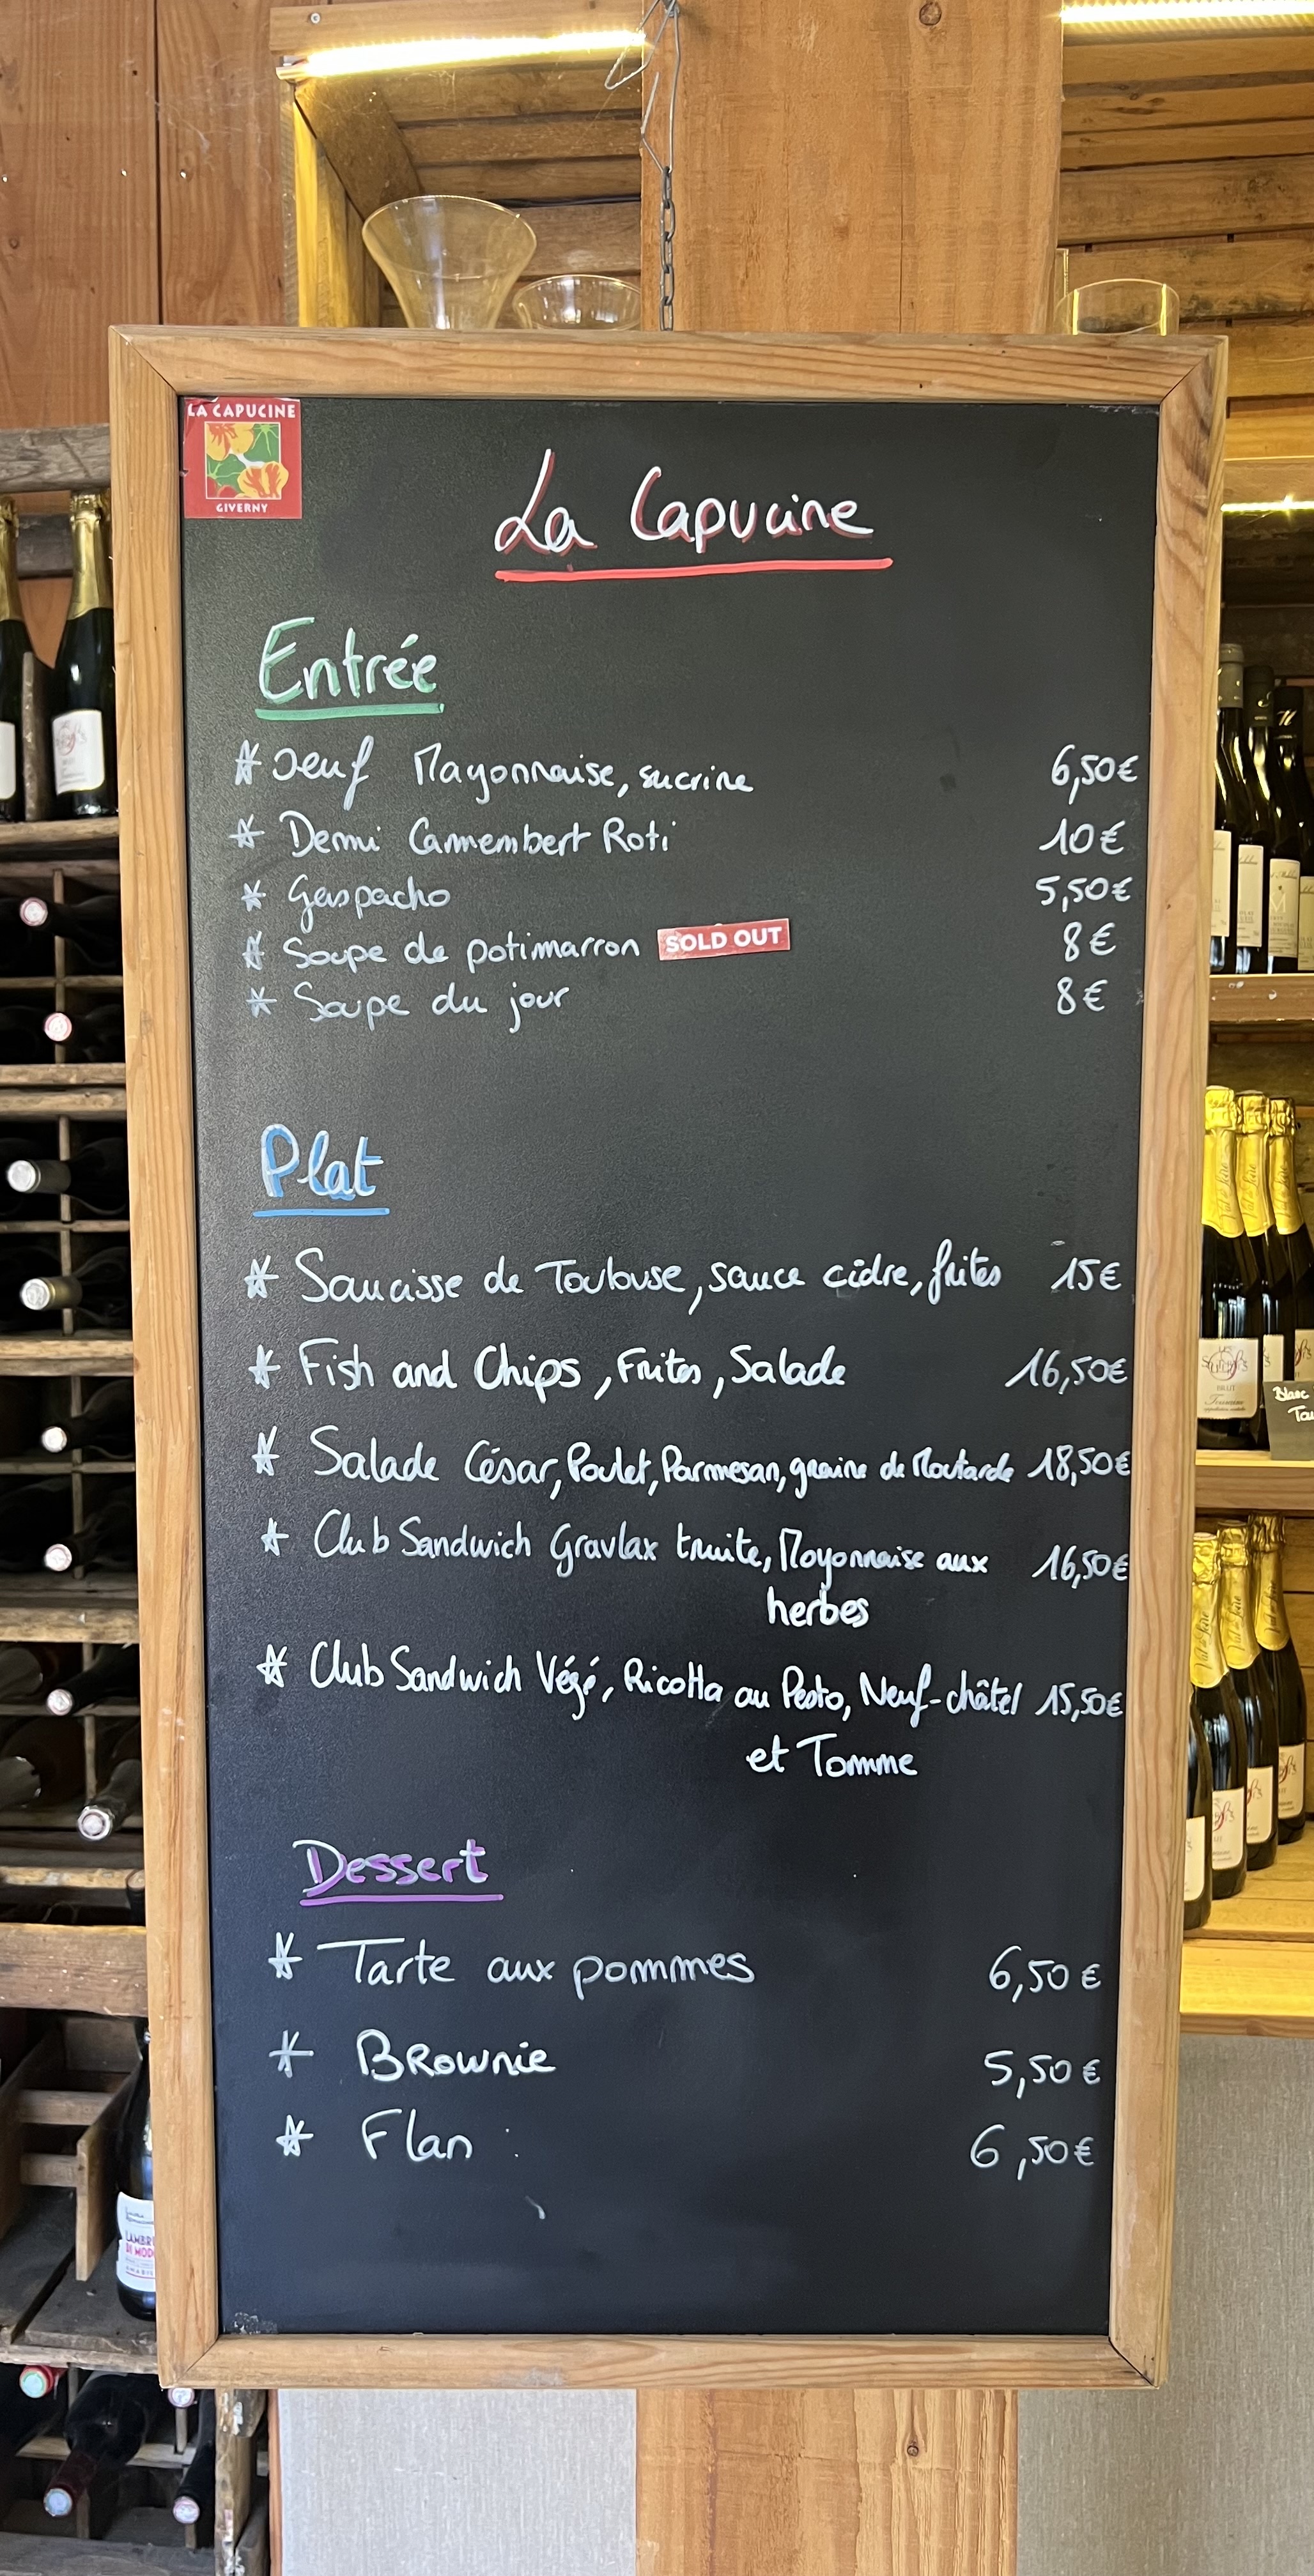 LA CAPUCINE
GIVERNY
La Capucine
Entrée
* Oeuf Mayonnaise, sucrine 6,50€
* Demi Camembert Roti 10€
* Gaspacho 5,50€
* Soupe de potimarron SOLD OUT 8€
* Soupe du jour 8€
Plat
* Saucisse de Toulouse, sauce cidre, frites 15€
* Fish and Chips, Frites, Salade 16,50€
* Salade César, Poulet, Parmesan, graine de Moutarde 18,50€
* Club Sandwich Gravlax truite, Mayonnaise aux 16,50€
herbes
* Club Sandwich Végé, Ricotta au Pesto, Neuf-châtel 15,50€
et Tomme
Dessert
* Tarte aux pommes 6,50€
* Brownie 5,50€
* Flan : 6,50€
Blanc
BRUT